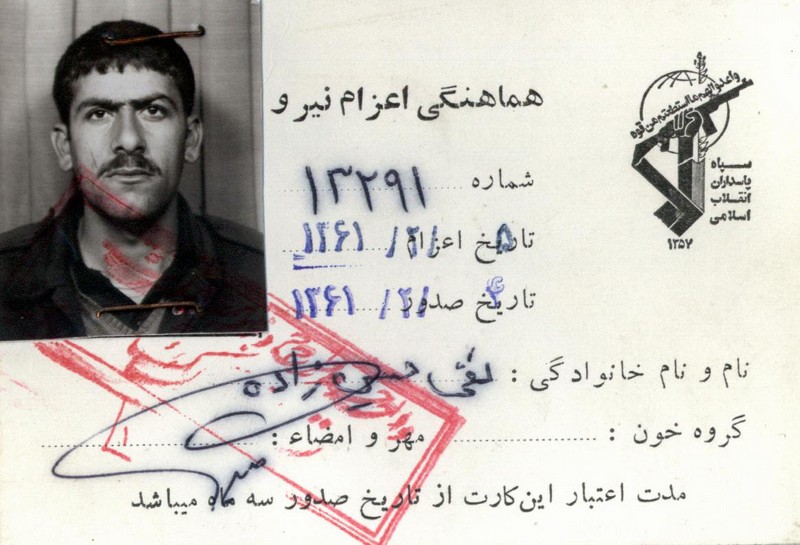 هماهنگی اعزام نیرو
واعدوا لهم ما استطعتم من قوه
سپاه
پاسداران
انقلاب
اسلامی
۱۳۵۷
شماره ۱۳۲۹۱
تاریخ اعزام ۵ /۲/ ۱۳۶۱
تاریخ صدور ۴ /۲/ ۱۳۶۱
نام و نام خانوادگی : تقی حسین زاده
گروه خون :
مهر و امضاء :
مدت اعتبار این کارت از تاریخ صدور سه ماه میباشد